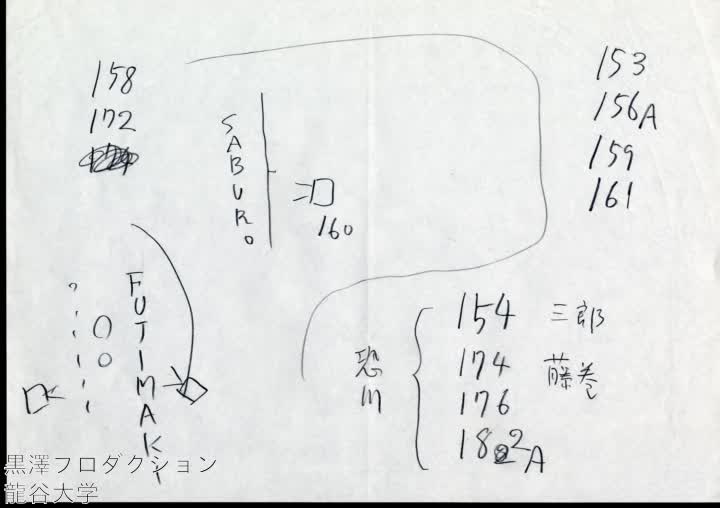 158
172
153
156A
159
161
SABURO
160
FUTIMAKI
恐川
154 三郎
174 藤巻
176
182A
黒澤プロダクション
龍谷大学